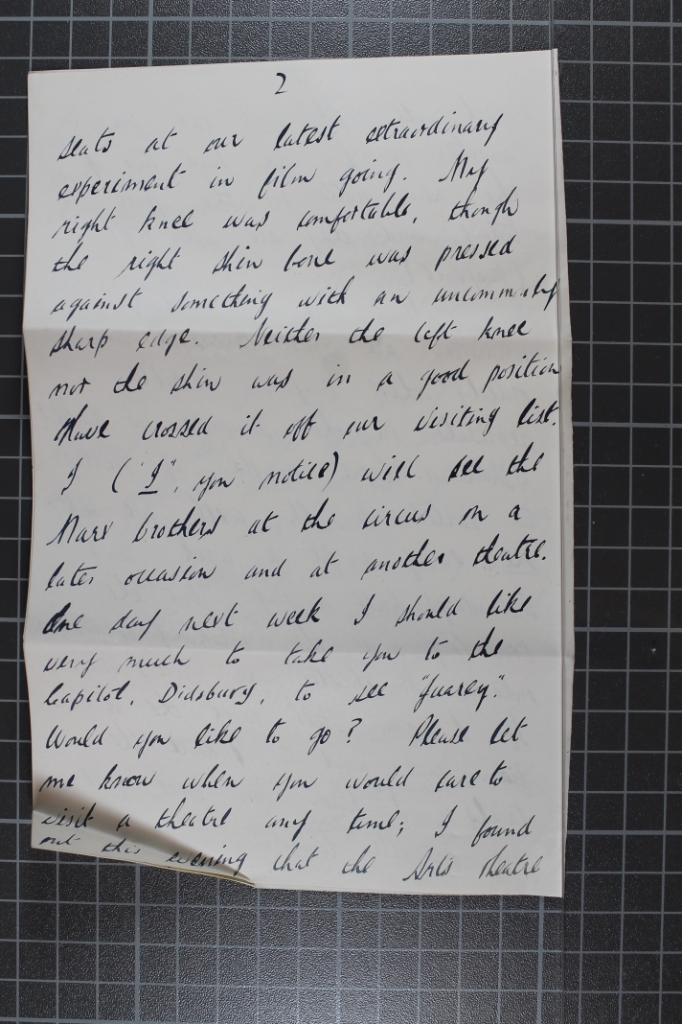 2
seats at our latest extraordinary
experiment in film going. My
right knee was comfortable, though
the right shin bone was pressed
against something with an uncommonly
sharp edge. Neither the left knee
nor the shin was in a good position
Have crossed it off our visiting list.
I ("I", you notice) will see the
Marx brothers at the circus on a
later occasion and at another theatre.
One day next week I should like
very much to take you to the
Capitol, Didsbury, to see "Juarez".
Would you like to go? Please let
me know when you would care to
visit a theatre any time; I found
out this evening that the Arts theatre